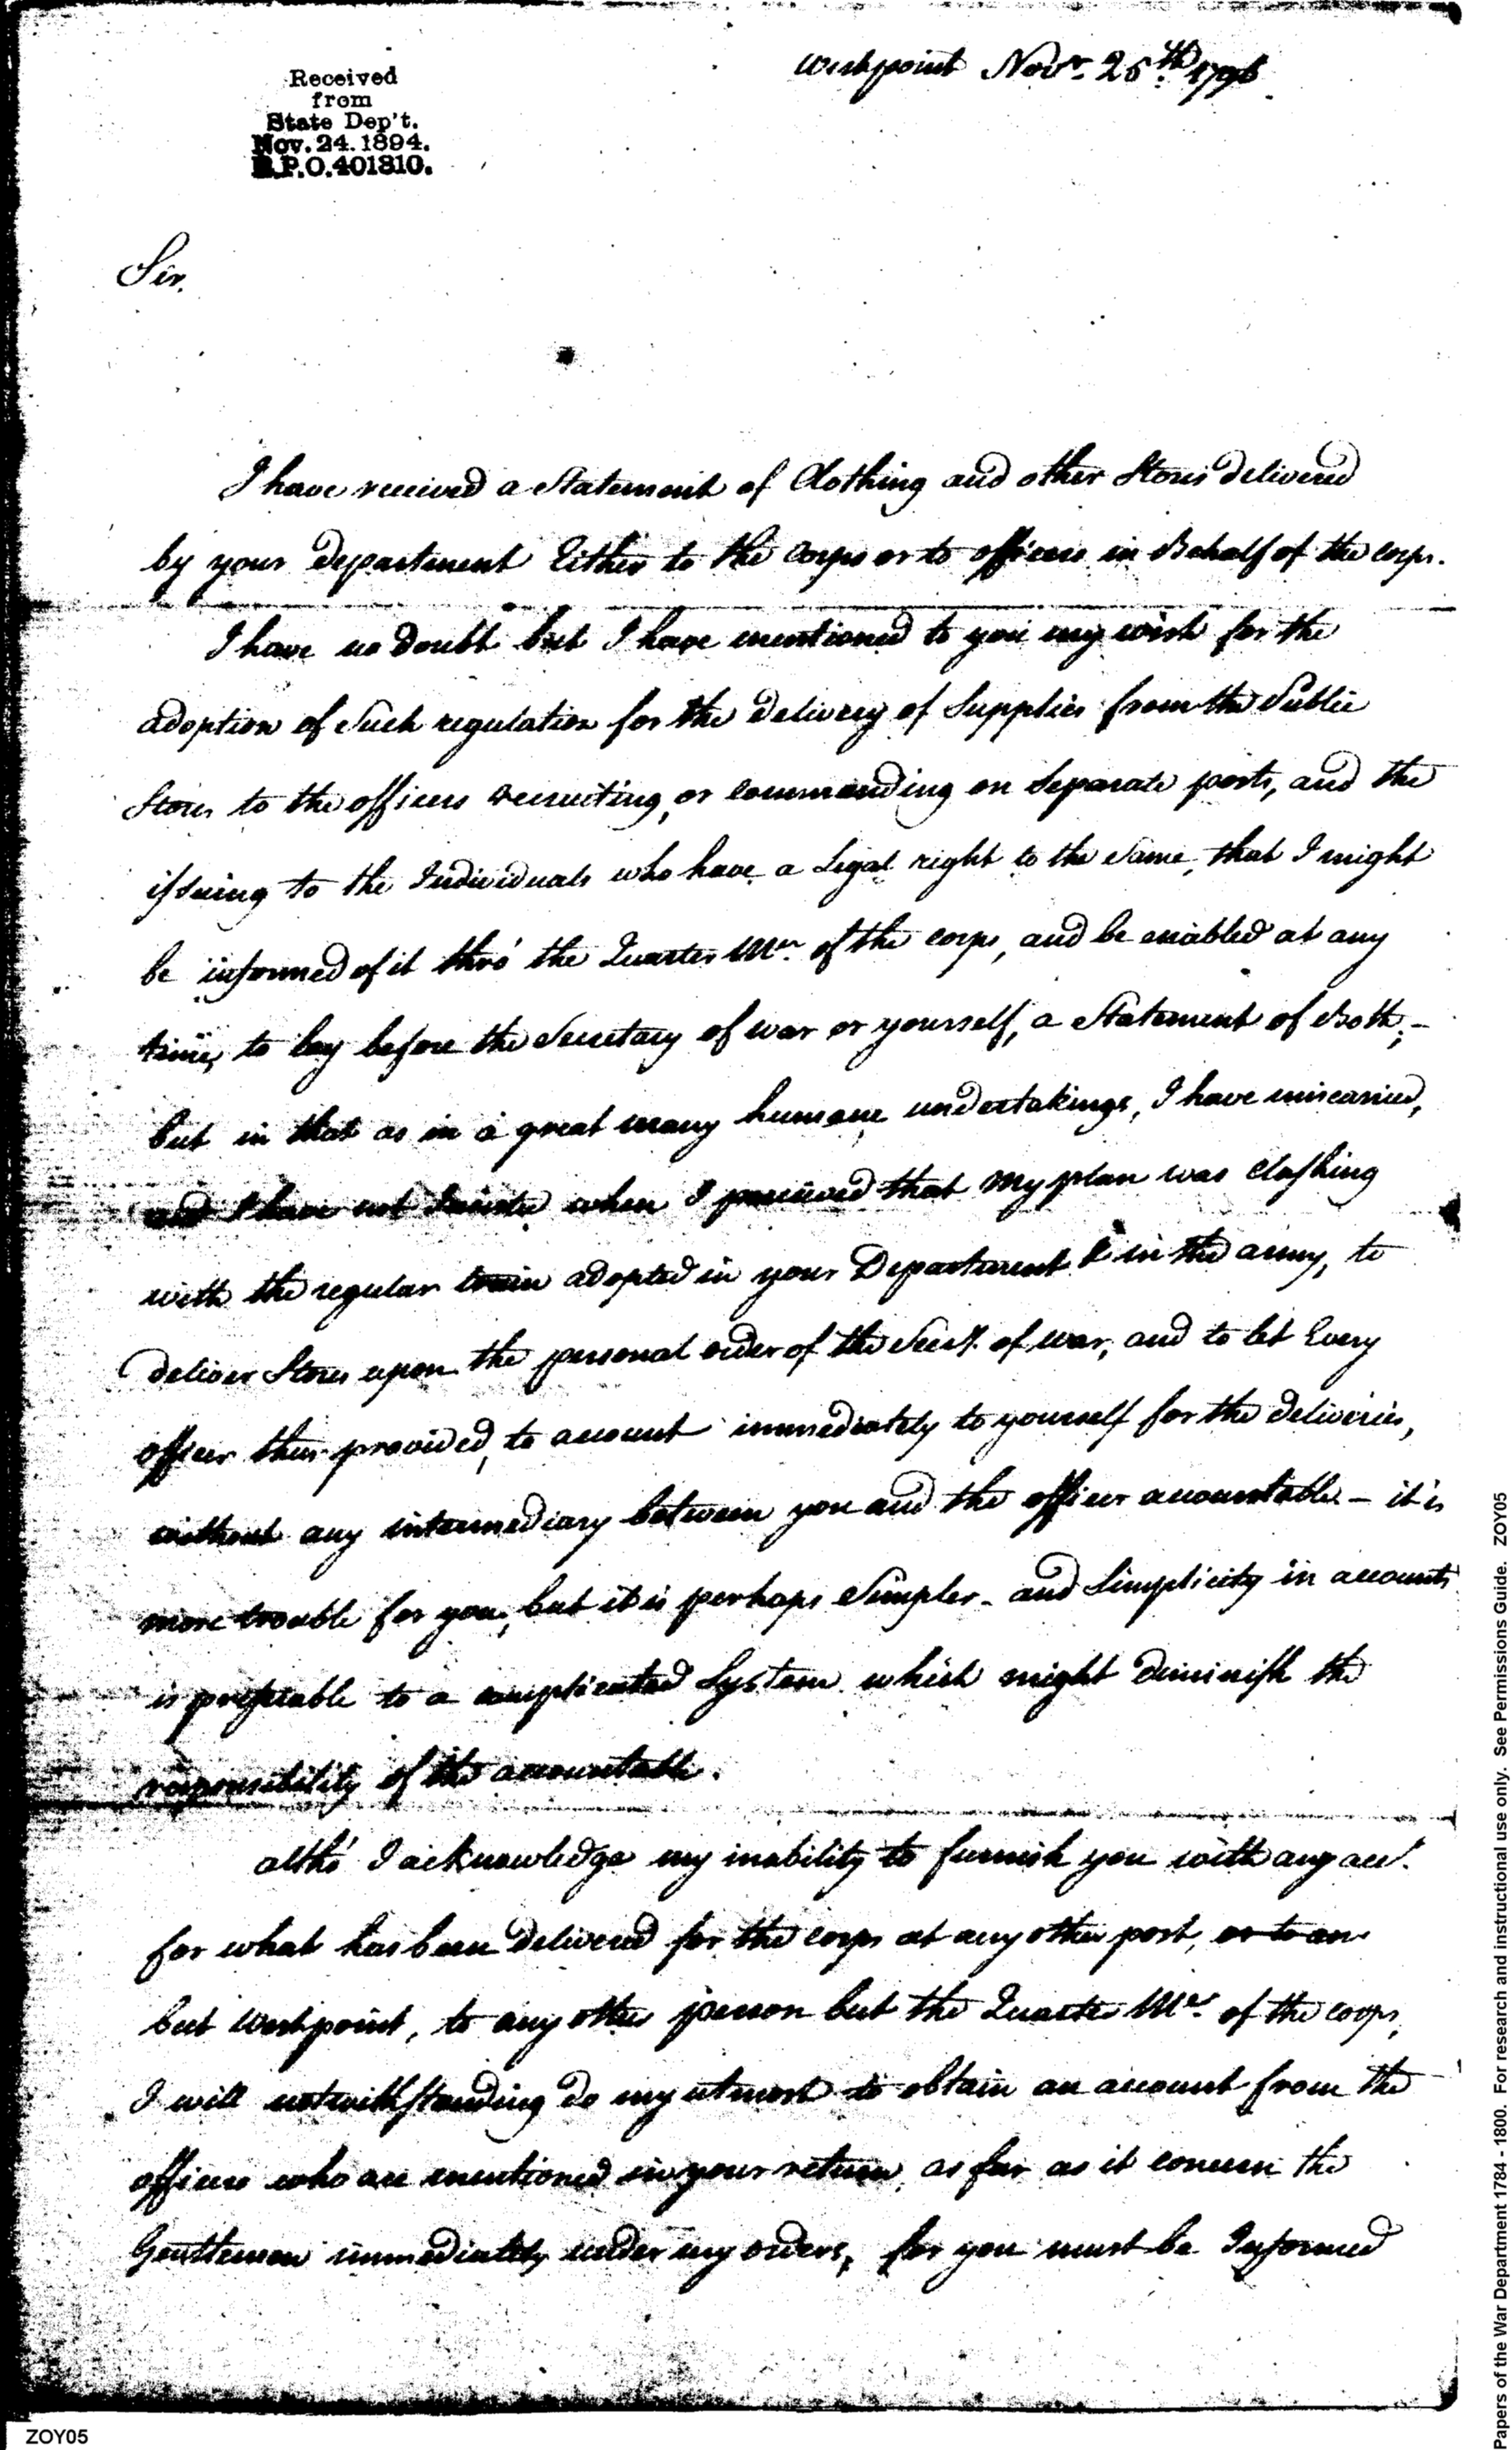 Westpoint Novr. 25th. 1796
Received
from
State Dep't.
Nov. 24. 1894.
R.P.O. 401310.
Sir.
I have received a Statement of Clothing and other Stores delivered
by your department Either to the Corps or to officers in Behalf of the corps.
I have no doubt but I have mentioned to you my wish for the
adoption of Such regulation for the delivery of Supplies from the Public
Stores to the officers recruiting, or commanding on Separate posts, and the
issuing to the Individuals who have a Legal right to the Same, that I might
be informed of it thro' the Quarter Mr. of the corps, and be enabled at any
time, to lay before the Secretary of war or yourself, a Statement of Both; -
but in that as in a great many humane undertakings, I have miscarried,
and I have not Insisted when I perceived that my plan was clashing
with the regular train adopted in your Department & in the army, to
deliver Stores upon the personal order of the Secry. of war, and to let Every
officer thus provided, to account immediately to yourself for the deliveries,
without any intermediary between you and the officer accountable - it is
more trouble for you, but it is perhaps Simpler - and Simplicity in accounts
is preferable to a complicated System which might diminish the
responsibility of the accountable.
altho' I acknowledge my inability to furnish you with any acct.
for what has been delivered for the corps at any other post, or to an
but westpoint, to any other person but the Quarter Mr. of the corps,
I will notwithstanding do my utmost to obtain an account from the
officers who are mentioned in your return, as far as it concern the
Gentlemen immediately under my orders, for you must be Informed
ZOY05
Papers of the War Department 1784 - 1800. For research and instructional use only. See Permissions Guide. ZOY05